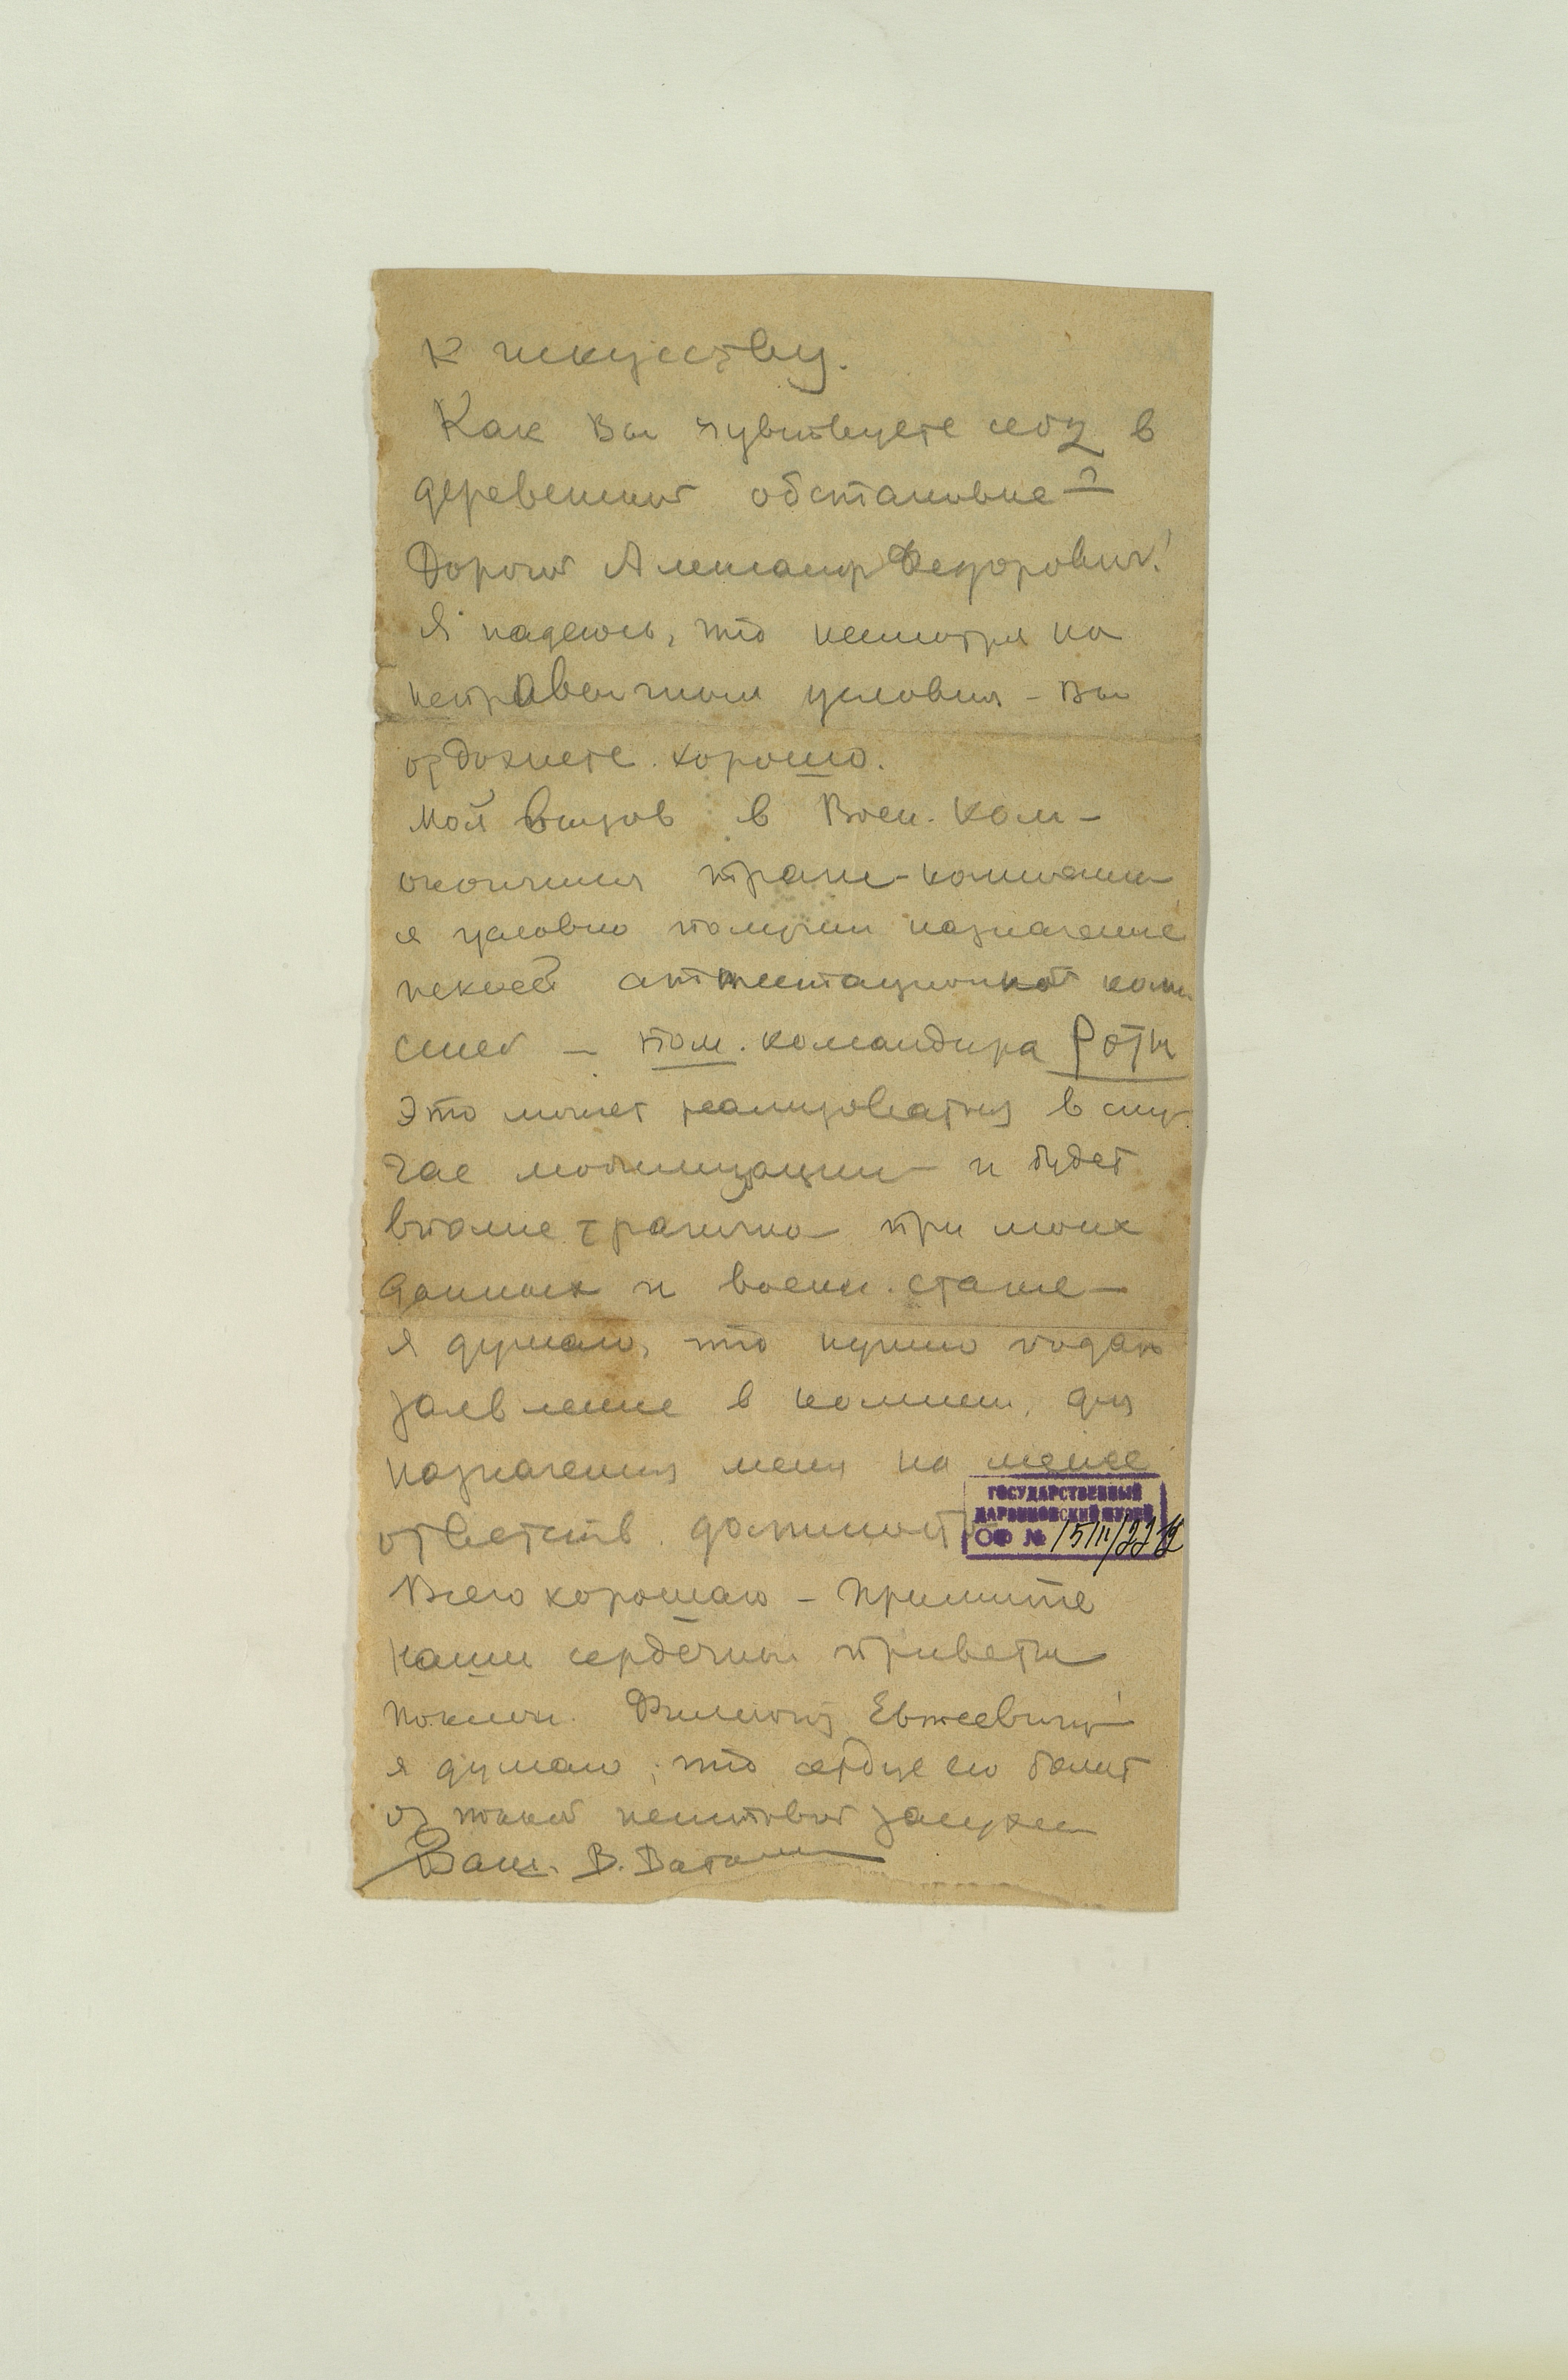 к искусству.
Как Вы чувствуете себя в
деревенской обстановке?
Дорогой Александр Федорович!
Я надеюсь, что несмотря на
непривычные условия – Вы
отдохнете хорошо.
Мой вызов в Воен. Ком –
окончился
я условно получил назначение
некоей аттестационной комис
сией – пом. командира Роты
Это может реализоваться в слу
чае мобилизации и будет
вполне трагично при моих
данных и воен. стаже –
я думаю, что нужно подать
заявление в комисси. для
назначения меня на менее
ответств. должность
Всего хорошего – примите
наши сердечные приветы
поклон. Филиппу Евтеевичу
я думаю, что сердце его болит
от такой неистовой засухи
Ваш. В. Ватагин
ГОСУДАРСТВЕННЫЙ
ДАРВИНОВСКИЙ МУЗЕЙ
ОФ №